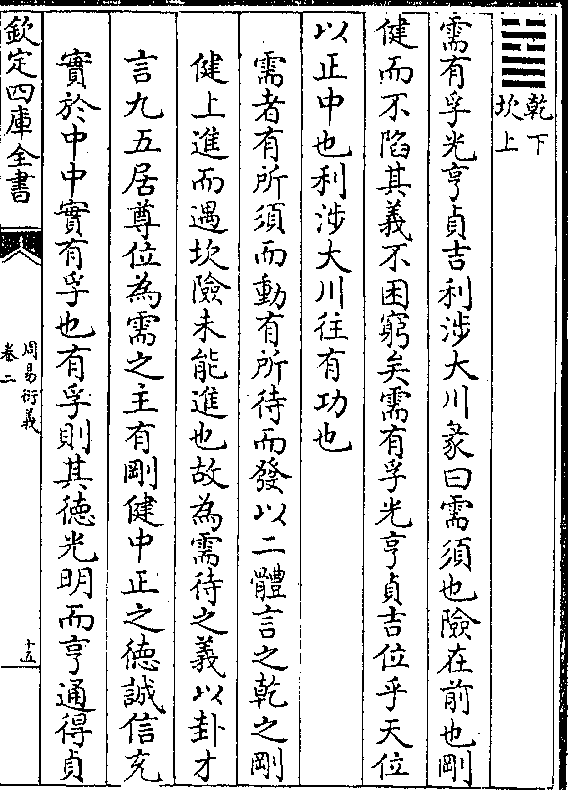 乾下
坎上
需有孚光亨貞吉利涉大川彖曰需須也險在前也剛
健而不陷其義不困窮矣需有孚光亨貞吉位乎天位
以正中也利涉大川往有功也
需者有所須而動有所待而發以二體言之乾之剛
健上進而遇坎險未能進也故為需待之義以卦才
言九五居尊位為需之主有剛健中正之德誠信充
實於中中實有孚也有孚則其德光明而亨通得貞
欽定四庫全書
周易衍義
卷二
十五